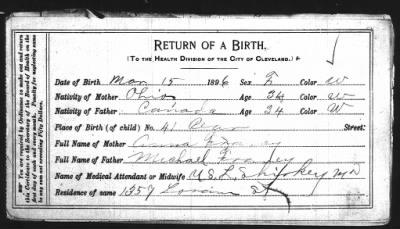 RETURN OF A BIRTH.
(TO THE HEALTH DIVISION OF THE CITY OF CLEVELAND.)
Date of Birth Mar 15 1896 Sex F Color W
Nativity of Mother Ohio Age 34 Color W
Nativity of Father Canada Age 34 Color W
Place of Birth (of child) No. 41 Street:
Full Name of Mother Anna
Full Name of Father Michael
Name of Medical Attendant or Midwife M.D.
Residence of same 1357 Lorain St
You are required by Ordinance to make out and return
this Certificate to the Secretary of the Board of Health on the
first day of each and every month. Penalty for neglecting same
not exceeding Fifty Dollars.